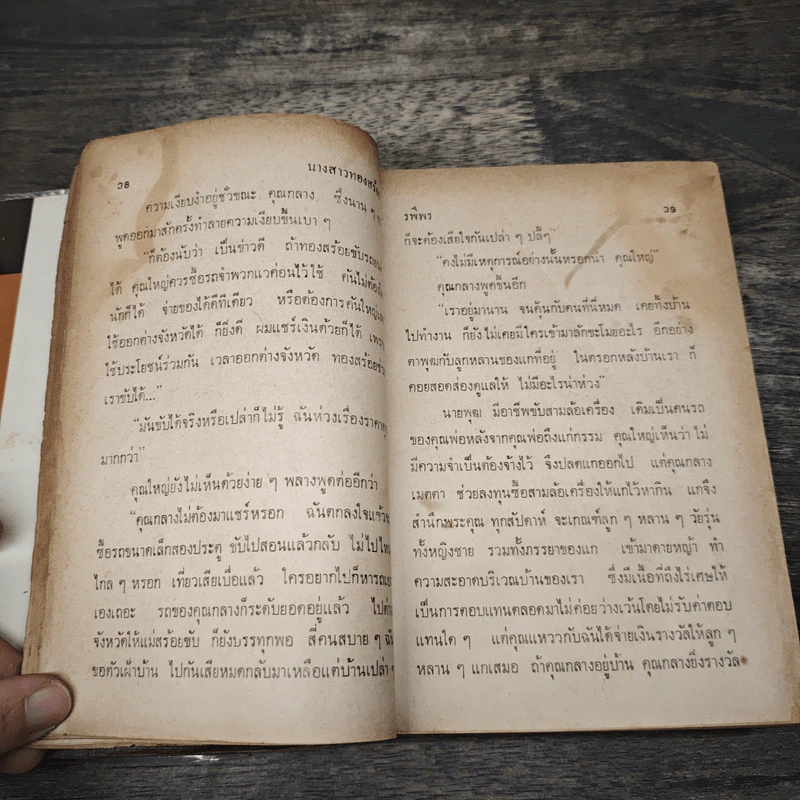 38
นางสาวทองสร้อย
ความเงียบงำอยู่ชั่วขณะ คุณกลาง ซึ่งนาน ๆ จะ
พูดออกมาสักครั้งทำลายความเงียบขึ้นเบา ๆ
"ก็ต้องนับว่า เป็นข่าวดี ถ้าทองสร้อยขับรถยนต์
ได้ คุณใหญ่ควรซื้อรถจำพวกแวค่อนไว้ใช้ คันไม่ต้องใ
นักก็ได้ จ่ายของได้ดีทีเดียว หรือต้องการคันใหญ่
ใช้ออกต่างจังหวัดได้ ก็ยิ่งดี ผมแชร์เงินด้วยก็ได้ เพรา
ใช้ประโยชน์ร่วมกัน เวลาออกต่างจังหวัด ทองสร้อยช่ว
เราขับได้..."
"มันขับได้จริงหรือเปล่าก็ไม่รู้ ฉันห่วงเรื่องราคาคุ
มากกว่า"
คุณใหญ่ยังไม่เห็นด้วยง่าย ๆ พลางพูดต่ออีกว่า
"คุณกลางไม่ต้องมาแชร์หรอก ฉันตกลงใจแล้วจะ
ซื้อรถขนาดเล็กสองประตู ขับไปสอนแล้วกลับ ไม่ไปไหน
ไกล ๆ หรอก เที่ยวเสียเบื่อแล้ว ใครอยากไปก็หารถเอา
เองเถอะ รถของคุณกลางก็ระดับยอดอยู่แล้ว ไปต่าง
จังหวัดให้แม่สร้อยขับ ก็ยังบรรทุกพอ สี่คนสบาย ๆ ฉัน
ขอตัวเฝ้าบ้าน ไปกันเสียหมดกลับมาเหลือแต่บ้านเปล่า ๆ
รพีพร
39
ก็จะต้องเสียใจกันเปล่า ๆ ปลี้ๆ"
"คงไม่มีเหตุการณ์อย่างนั้นหรอกน่า คุณใหญ่"
คุณกลางพูดขึ้นอีก
"เราอยู่มานาน จนคุ้นกับคนที่นี่หมด เคยทิ้งบ้าน
ไปทำงาน ก็ยังไม่เคยมีใครเข้ามาลักขะโมยอะไร อีกอย่าง
ตาพุฒกับลูกหลานของแกที่อยู่ ในตรอกหลังบ้านเรา ก็
คอยสอดส่องดูแลให้ ไม่มีอะไรน่าห่วง"
นายพุฒ มีอาชีพขับสามล้อเครื่อง เดิมเป็นคนรถ
ของคุณพ่อหลังจากคุณพ่อถึงแก่กรรม คุณใหญ่เห็นว่าไม่
มีความจำเป็นต้องจ้างไว้ จึงปลดแกออกไป แต่คุณกลาง
เมตตา ช่วยลงทุนซื้อสามล้อเครื่องให้แกไว้หากิน แกจึง
สำนึกพระคุณ ทุกสัปดาห์ จะเกณฑ์ลูก ๆ หลาน ๆ วัยรุ่น
ทั้งหญิงชาย รวมทั้งภรรยาของแก เข้ามาดายหญ้า ทำ
ความสะอาดบริเวณบ้านของเรา ซึ่งมีเนื้อที่ถึงไร่เศษให้
เป็นการตอบแทนตลอดมาไม่ค่อยว่างเว้นโดยไม่รับค่าตอบ
แทนใด ๆ แต่คุณแหววกับฉันได้จ่ายเงินรางวัลให้ลูก ๆ
หลาน ๆ แกเสมอ ถ้าคุณกลางอยู่บ้าน คุณกลางยิ่งรางวัล